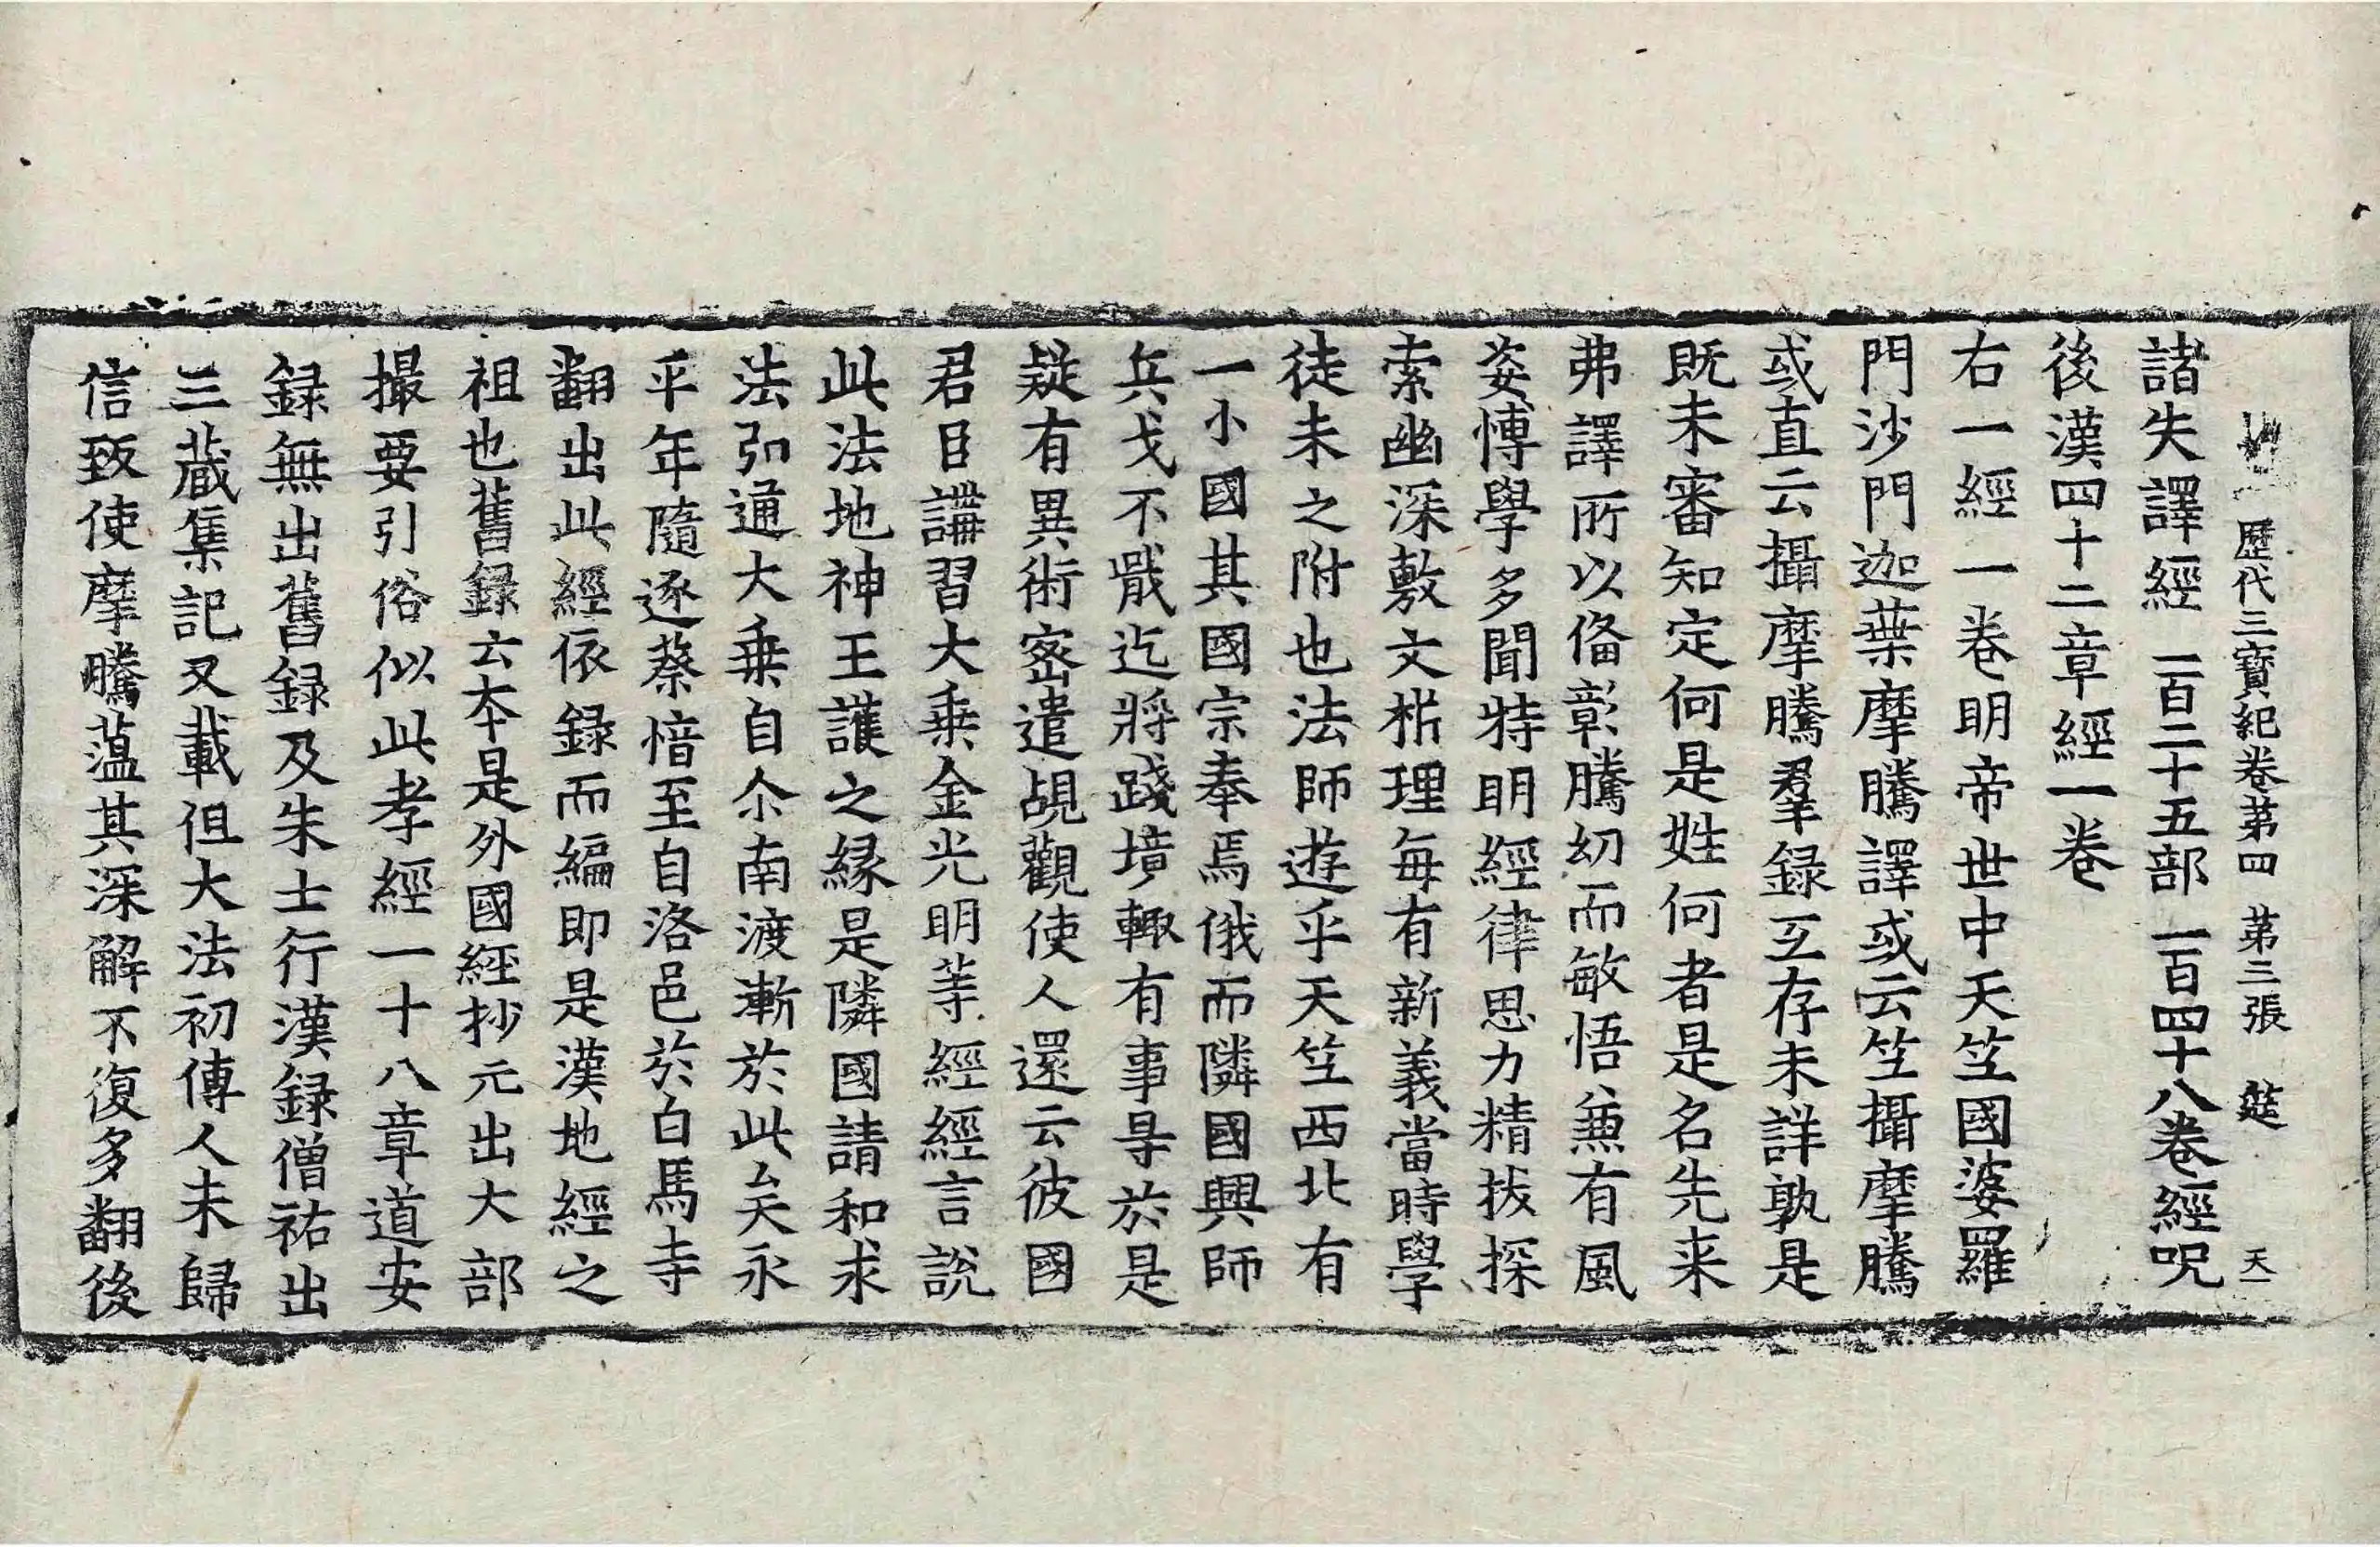 歷代三寶紀卷第四　第三張　㢟　天一
諸失譯經　一百二十五部　一百四十八卷經呪
後漢四十二章經一卷
右一經一卷明帝世中天竺國婆羅
門沙門迦葉摩騰譯或云竺攝摩騰
或直云攝摩騰羣録互存未詳孰是
既未審知定何是姓何者是名先来
弗譯所以俻彰騰幼而敏悟兼有風
姿博學多聞特明經律思力精拔探
索幽深敷文析理每有新義當時學
徒未之附也法師遊乎天竺西北有
一小國其國宗奉焉俄而隣國興師
兵戈不戢迄將踐境輙有事㝵於是
疑有異術密遣覘觀使人還云彼國
君目講習大乗金光明等經經言說
此法地神王護之緣是隣國請和求
法弘通大乗自尒南渡漸於此矣永
平年隨逐蔡愔至自洛邑於白馬寺
翻出此經依録而編即是漢地經之
祖也舊録云本是外國經抄元出大部
撮要引俗似此孝經一十八章道安
録無出舊録及朱士行漢録僧祐出
三藏集記又載但大法初傳人未歸
信致使摩騰蘊其深解不復多翻後